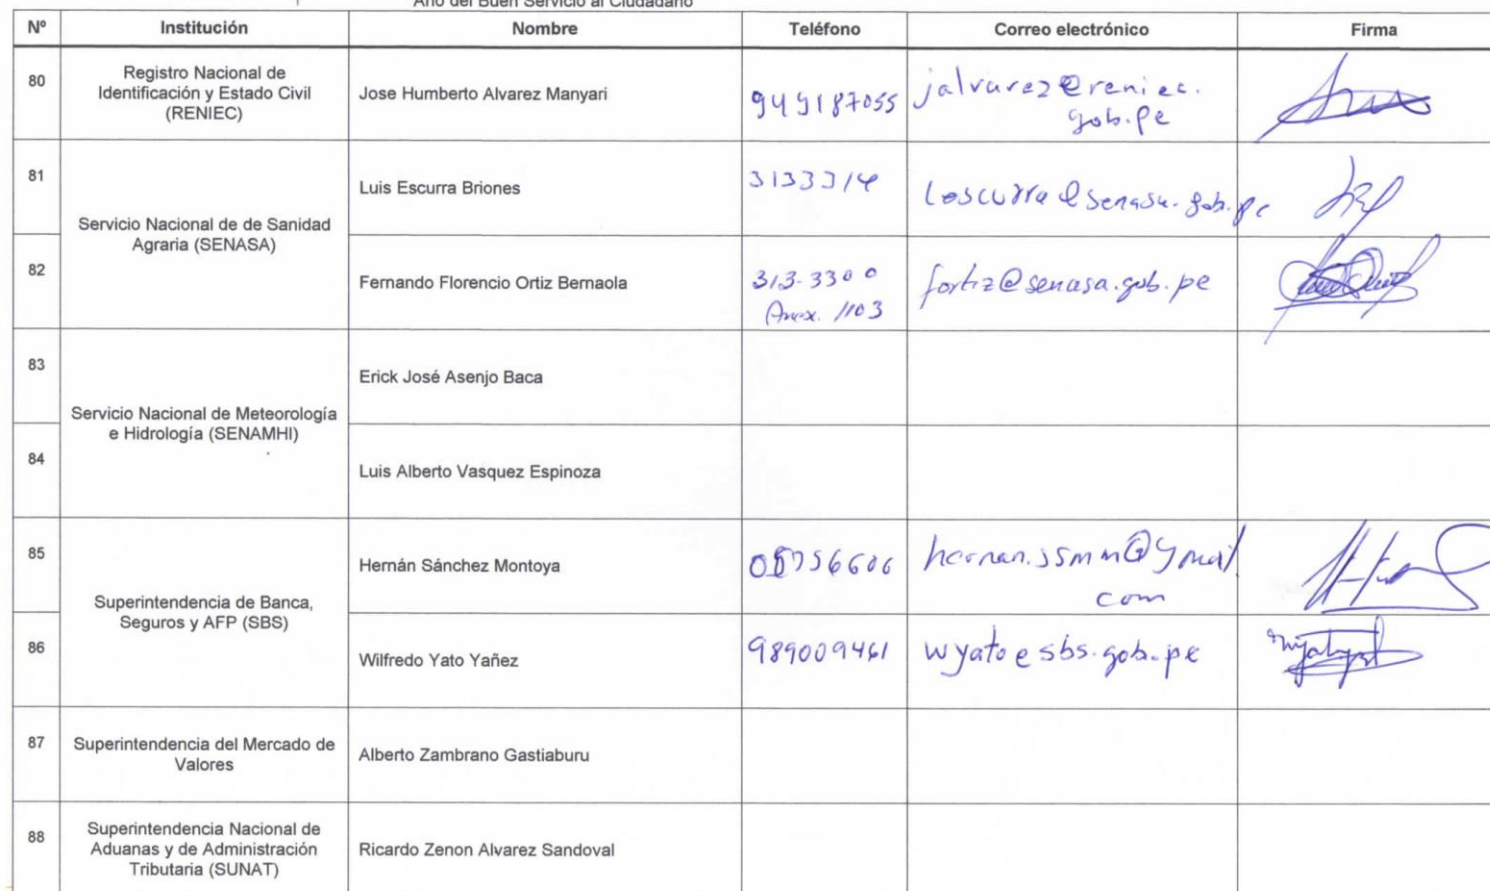 Año del Buen Servicio al Ciudadano
Nº Institución Nombre Teléfono Correo electrónico Firma
80
Registro Nacional de
Identificación y Estado Civil
(RENIEC)
Jose Humberto Alvarez Manyari
949187055
jalvarez@reniec.
gob.pe
81
Servicio Nacional de de Sanidad
Agraria (SENASA)
Luis Escurra Briones
3133314
lescurra@senasa.gob.pe
82
Fernando Florencio Ortiz Bernaola
313-3300
Anex. 1103
fortiz@senasa.gob.pe
83
Servicio Nacional de Meteorología
e Hidrología (SENAMHI)
Erick José Asenjo Baca
84
Luis Alberto Vasquez Espinoza
85
Superintendencia de Banca,
Seguros y AFP (SBS)
Hernán Sánchez Montoya
hernan.ssmm@gmail.
com
86
Wilfredo Yato Yañez
989009461
wyato@sbs.gob.pe
87
Superintendencia del Mercado de
Valores
Alberto Zambrano Gastiaburu
88
Superintendencia Nacional de
Aduanas y de Administración
Tributaria (SUNAT)
Ricardo Zenon Alvarez Sandoval